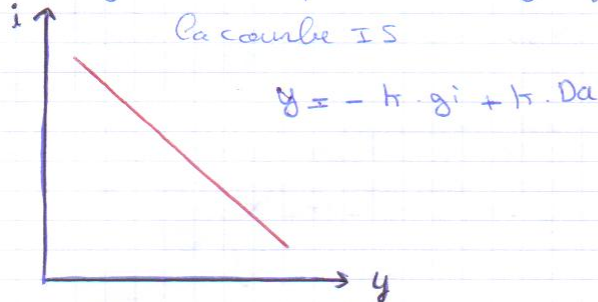 i
la courbe IS
y = - k . gi + k . Da
y